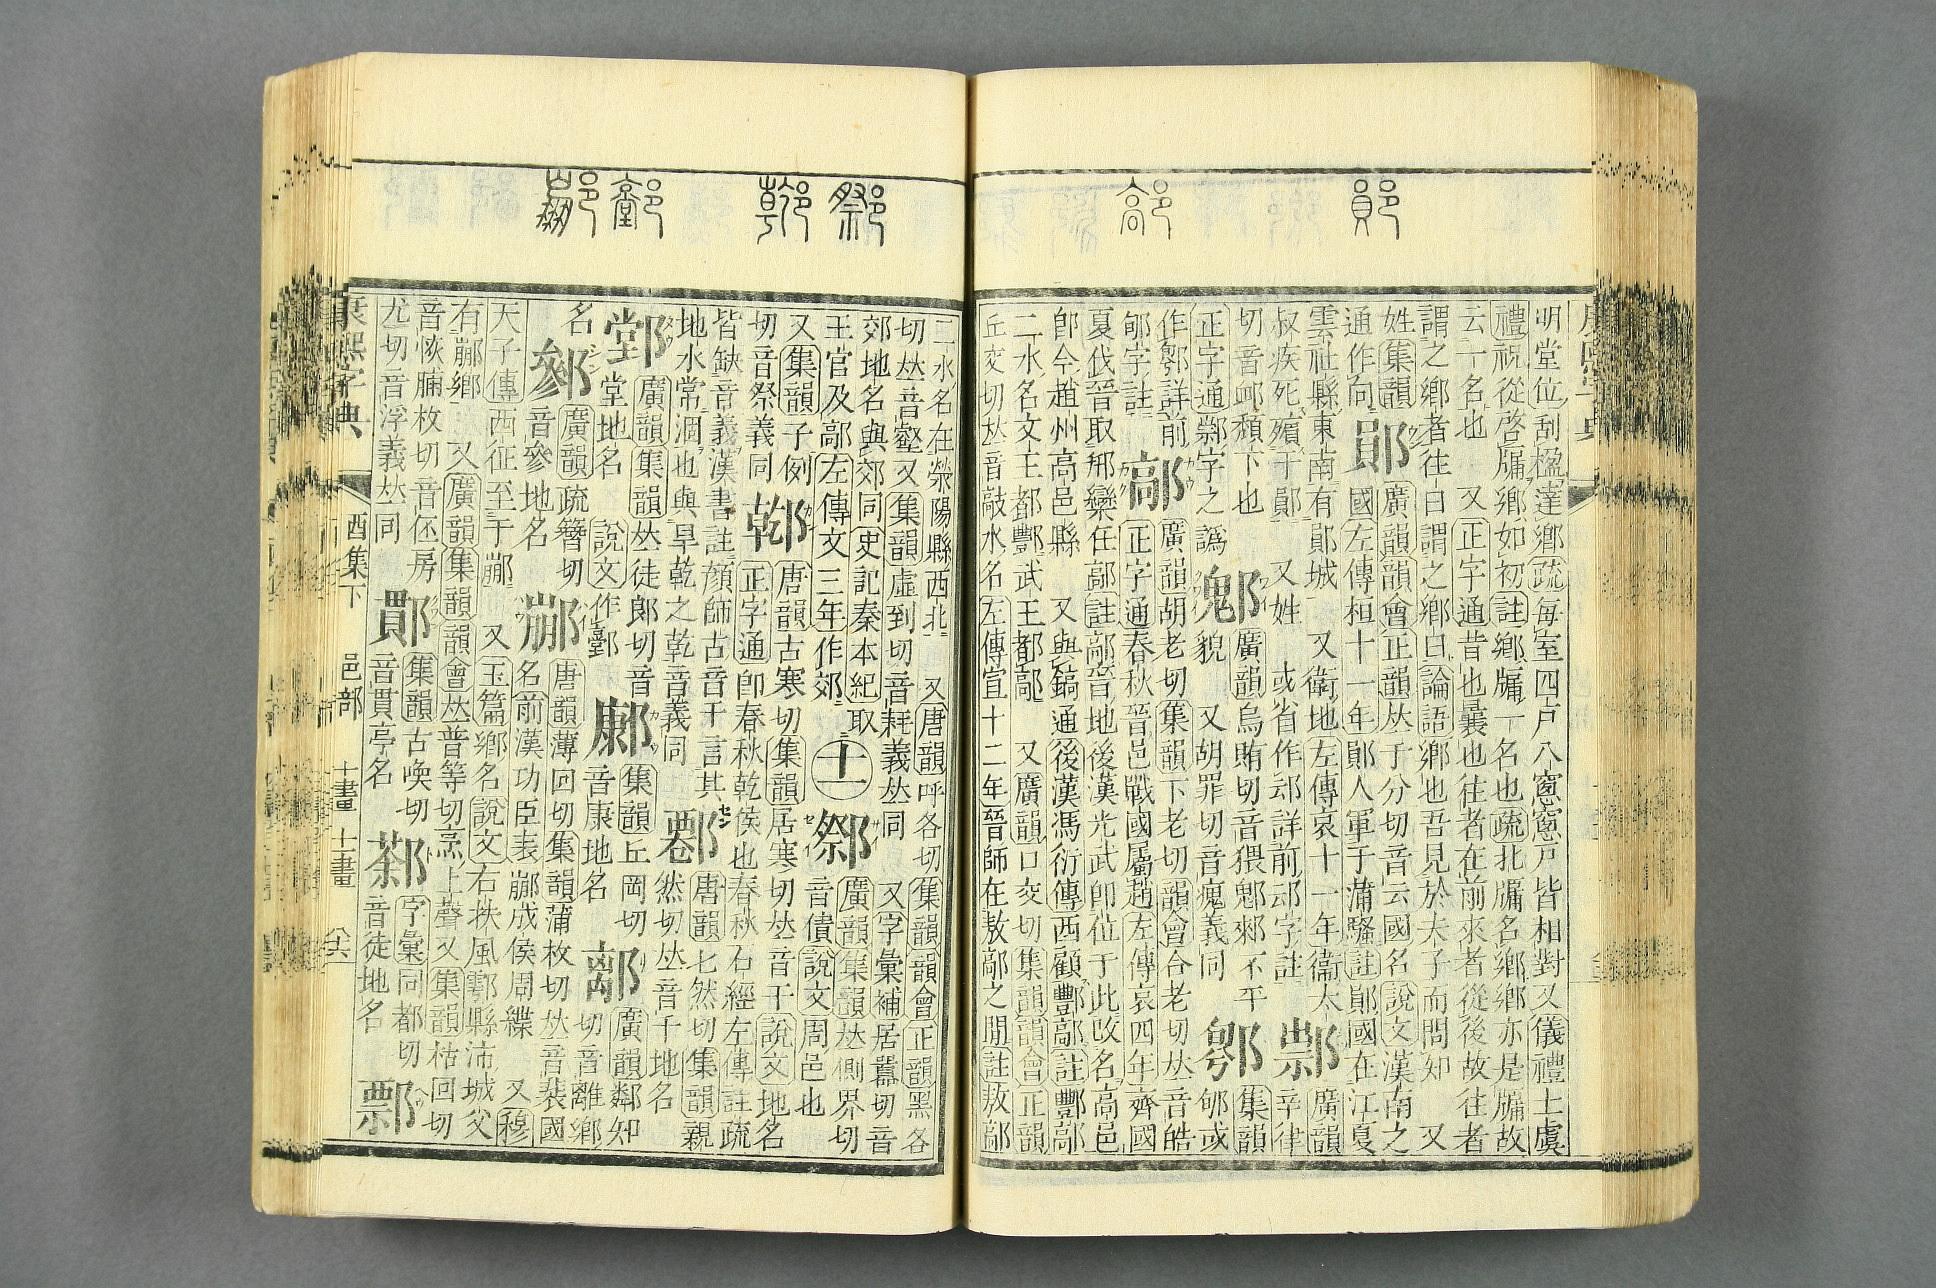 明堂位刮楹達鄉疏每室四戸八窻窻戸皆相對又儀禮士虞
禮祝從啓牖鄉如初註鄉牖一名也疏北牖名鄉鄉亦是牖故
云一名也 又正字通昔也曩也往者在前來者從後故往者
謂之鄉者往曰謂之鄉曰論語鄉也吾見於夫子而問知 又
姓集韻 鄖 廣韻韻會正韻𠀤于分切音云國名說文漢南之
通作向 國左傳桓十一年鄖人軍于蒲騷註鄖國在江夏
雲社縣東南有鄖城 又衞地左傳哀十一年衞太 廣韻
叔疾死殯于鄖 又姓 或省作䢵詳前䢵字註 辛律
切音卹頹下也 廣韻烏賄切音猥 不平 集韻
正字通 字之譌 貌 又胡罪切音瘣義同 或
作 詳前 鄗 廣韻胡老切集韻下老切韻會合老切𠀤音皓
字註 正字通春秋晉邑戰國屬趙左傳哀四年齊國
夏伐晉取邢欒任鄗註鄗晉地後漢光武卽位于此改名高邑
卽今趙州高邑縣 又與鎬通後漢馮衍傳西顧酆鄗註酆鄗
二水名文王都酆武王都鄗 又廣韻口交切集韻韻會正韻
丘交切𠀤音敲水名左傳宣十二年晉師在敖鄗之閒註敖鄗
二水名在滎陽縣西北 又唐韻呼各切集韻韻會正韻黑各
切𠀤音壑又集韻虛到切音耗義𠀤同 又字彙補居囂切音
郊地名與郊同史記秦本紀取 鄒 廣韻集韻𠀤側界切
王官及鄗左傳文三年作郊 十一 音債說文周邑也
又集韻子例 唐韻古寒切集韻居寒切𠀤音干說文地名
切音祭義同 正字通卽春秋乾侯也春秋石經左傳註疏
皆缺音義漢書註顏師古音干言其 唐韻七然切集韻親
地水常涸也與旱乾之乾音義同 然切𠀤音千地名
廣韻集韻𠀤徒郎切音 集韻丘岡切 廣韻鄰知
堂地名 說文作 音康地名 切音離鄉
名 廣韻疏簪切 唐韻薄回切集韻蒲枚切𠀤音裴國
音參地名 名前漢功臣表䣙成侯周緤 又穆
天子傳西征至于䣙 又玉篇鄉名說文右扶風鄠縣沛城父
有䣙鄉 又廣韻集韻韻會𠀤普等切烹上聲又集韻枯回切
音恢 枚切音伾房 集韻古喚切 字彙同都切
尤切音浮義𠀤同 音貫亭名 音徒地名
康熙字典 酉集下 邑部 十畫 十一畫 八六